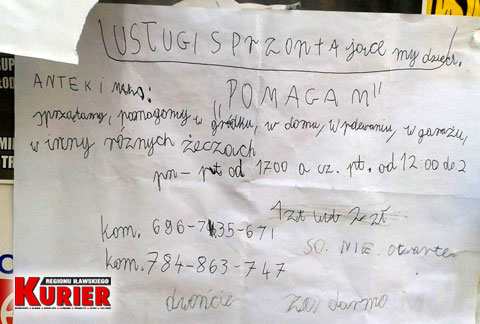 USŁUGI SPRZONTAjące my dzieci.
ANTEK i
"POMAGAM"
sprzątamy, pomagomy w gródku, w domu, w plewaniu, w garażu,
w inny różnych żeczach
pn - pt od 1700 a cz. pt. od 12.00 do 2
1 zł lub 2 zł
kom. 696-7435-671
SO. NIE. otwarte
kom. 784-863-747
dzwońcie za darmo
REGIONU IŁAWSKIEGO
KURIER